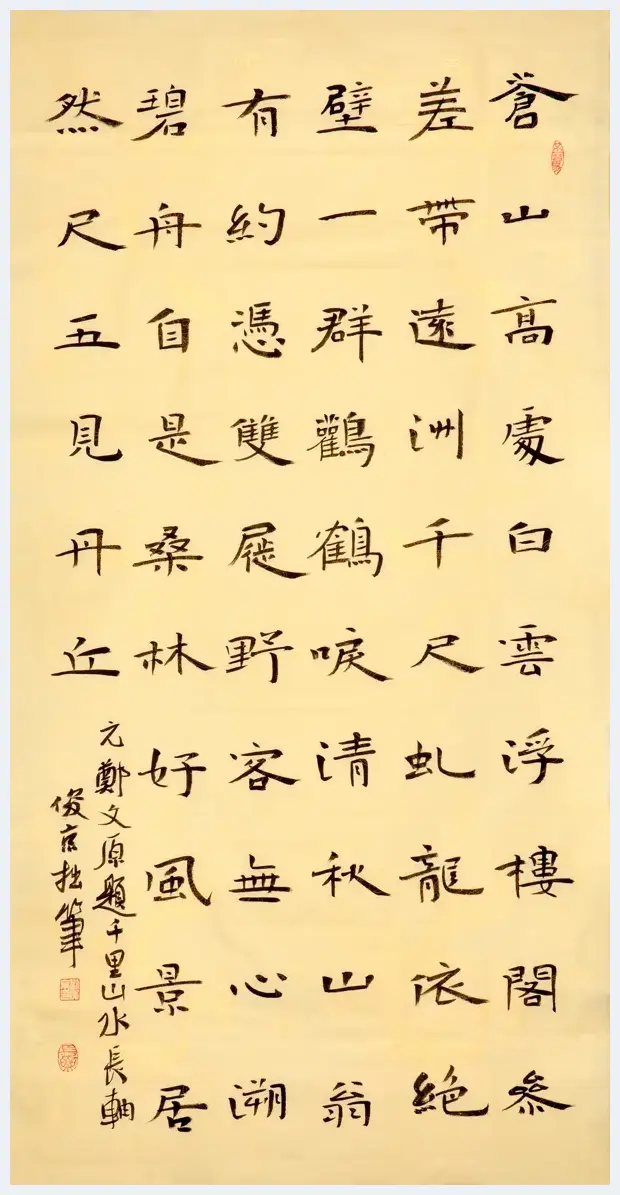 蒼山高處白雲浮樓閣參
差帶遠洲千尺虬龍依絕
壁一群鸛鶴唳清秋山翁
有約憑雙屐野客無心溯
碧舟自是桑林好風景居
然尺五見丹丘
元鄭文原題千里山水長軸
俊京拙筆